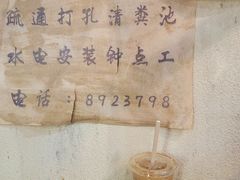 疏通打孔清粪池
水电安装钟点工
电话:8923798